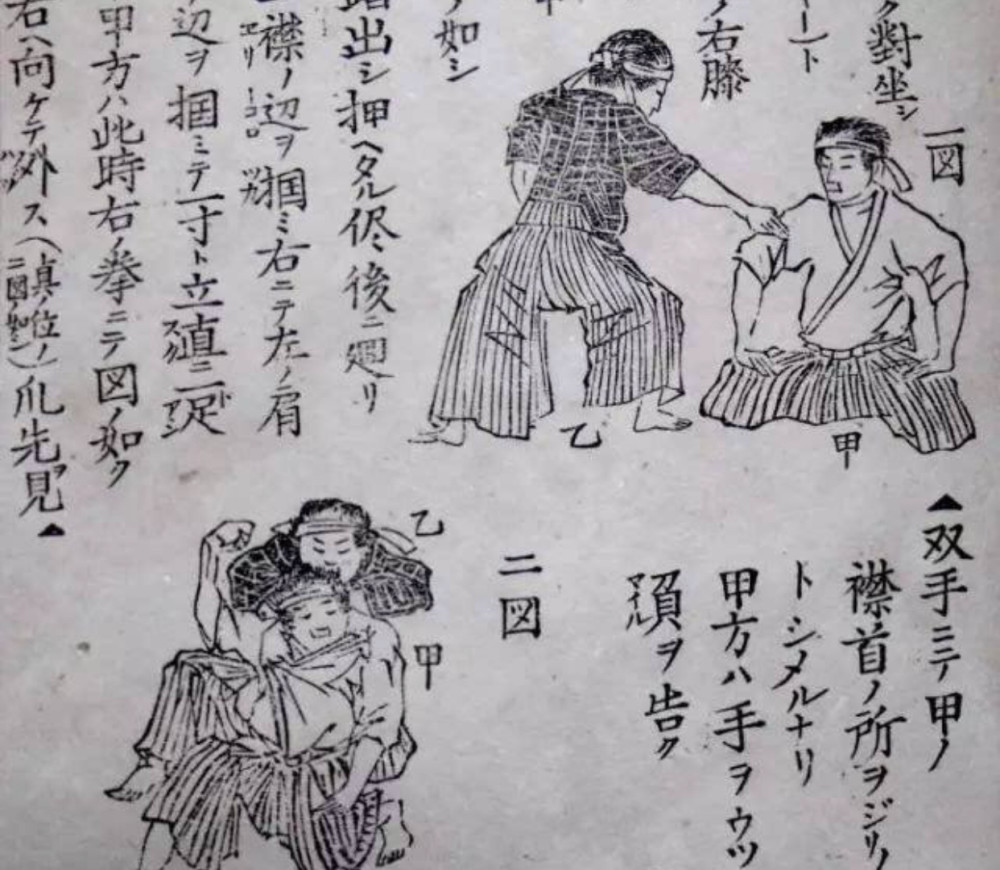 對坐シ
一図
ノ右膝
ノ如シ
踏出シ押ヘタル侭後ニ廻リ
襟ノ辺ヲ掴ミ右ニテ左ノ肩
辺ヲ掴ミテ一寸ト立直ニ二足
甲方ハ此時右ノ拳ニテ図ノ如ク
右ヘ向ケテ外ス(真ノ位ノ二図ノ如シ)爪先ヲ見▲
乙
甲
▲双手ニテ甲ノ
襟首ノ所ヲジリノ
トシメルナリ
甲方ハ手ヲウツ
ヲ告ク
二図
乙
甲